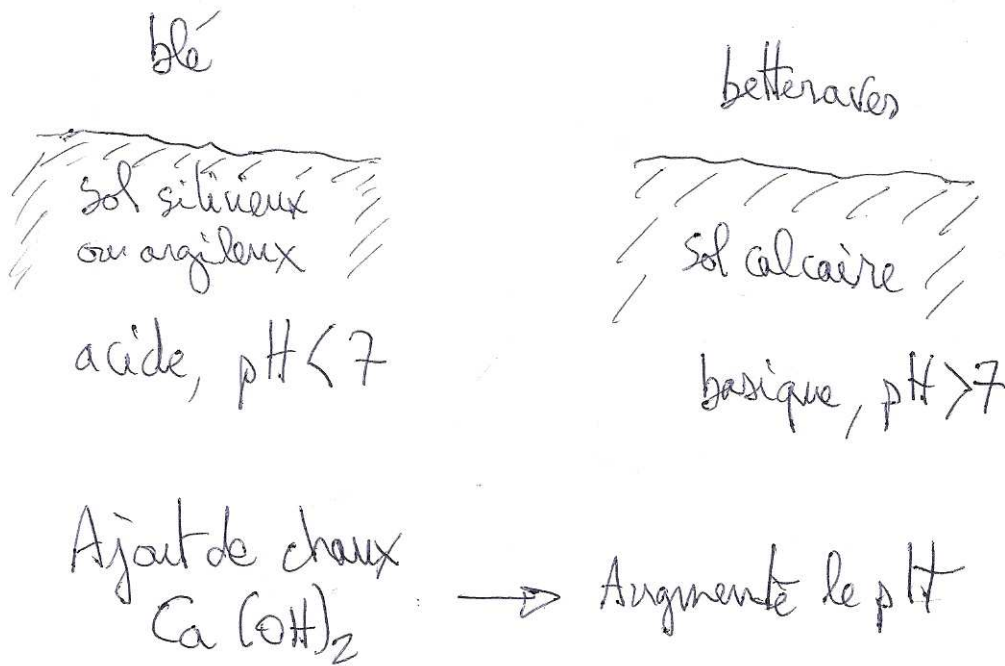 blé
sol silicieux
ou argileux
acide, pH < 7
betteraves
sol calcaire
basique, pH > 7
Ajout de chaux
Ca(OH)₂
→ Augmente le pH